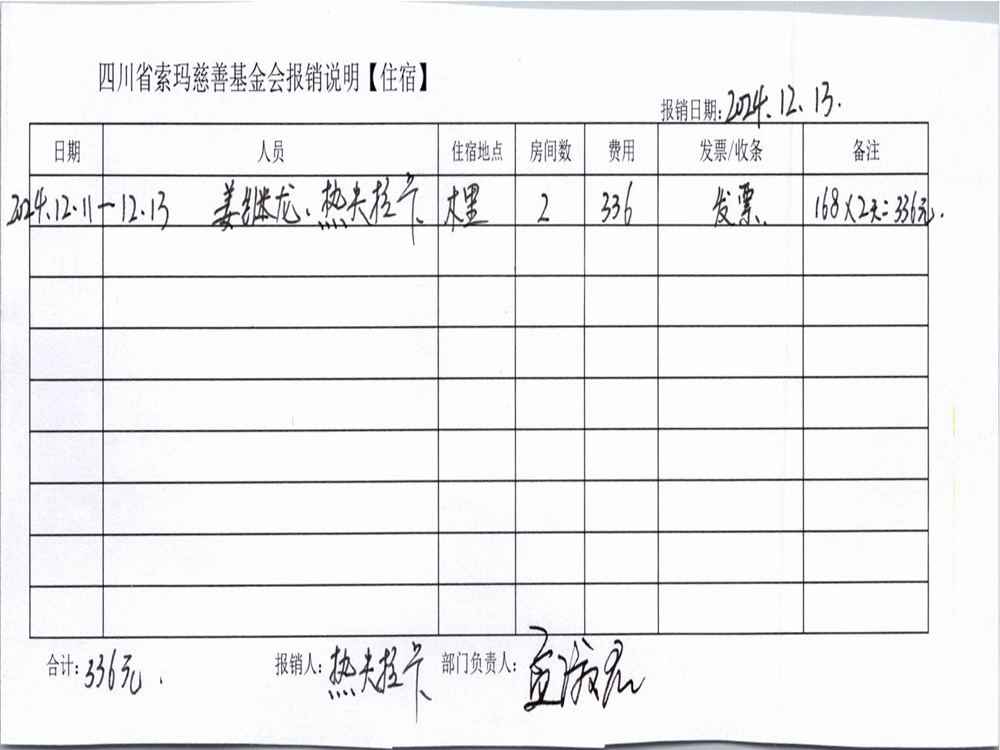 四川省索玛慈善基金会报销说明【住宿】
报销日期:2024.12.13.
日期 人员 住宿地点 房间数 费用 发票/收条 备注
2024.12.11—12.13 姜继龙、热夫拉卡 木里 2 336 发票 168×2天=336元.
合计:336元. 报销人:热夫拉卡 部门负责人: